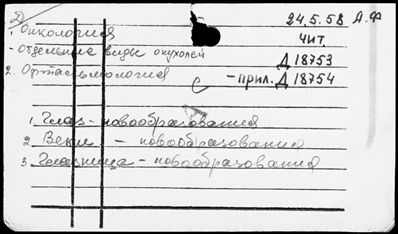 Д 24.5.58 А.Ф
1. Онкология чит.
- Отдельные виды опухолей Д 18753
2. Офтальмология - прил. Д 18754
С
1. Глаз - новообразования
2. Веки - новообразования
3. Глазница - новообразования